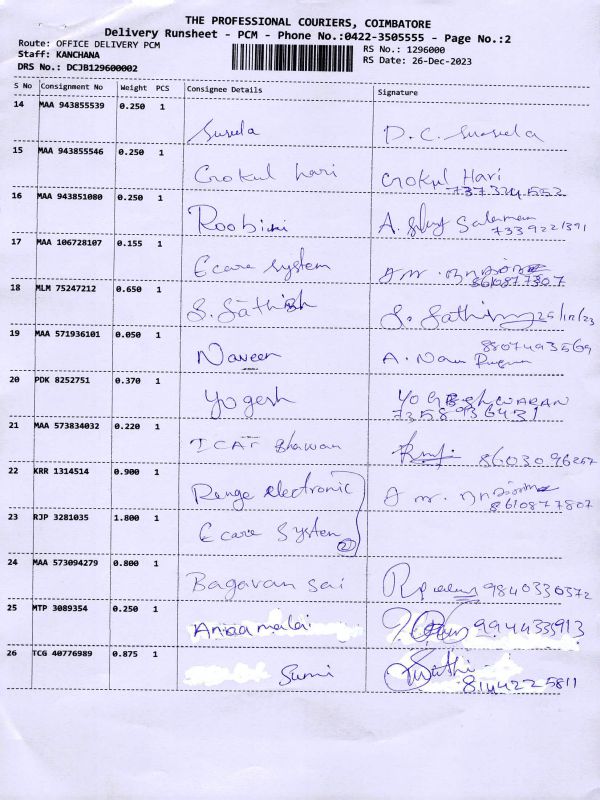 THE PROFESSIONAL COURIERS, COIMBATORE
Delivery Runsheet - PCM - Phone No.:0422-3505555 - Page No.:2
Route: OFFICE DELIVERY PCM
RS No.: 1296000
Staff: KANCHANA
RS Date: 26-Dec-2023
DRS No.: DCJB129600002
S No Consignment No Weight PCS Consignee Details Signature
14 MAA 943855539 0.250 1
Suseela D.C. Suseela
15 MAA 943855546 0.250 1
Gokul hari Gokul Hari
16 MAA 943851080 0.250 1
Roobini A.
7339221391
17 MAA 106728107 0.155 1
Ecare System
8610877807
18 MLM 75247212 0.650 1
S. Sathish S.
19 MAA 571936101 0.050 1
8807493569
Naveen A.
20 PDK 8252751 0.370 1
Yogesh YOGESHWARAN
7358936431
21 MAA 573834032 0.220 1
ICAT Bhawan 8603096257
22 KRR 1314514 0.900 1
Renge electronic
8610877807
23 RJP 3281035 1.800 1
Ecare System
2
24 MAA 573094279 0.800 1
Bagavan sai 9840330372
25 MTP 3089354 0.250 1
Annamalai 9944335913
26 TCG 40776989 0.875 1
Sumi
8144225811